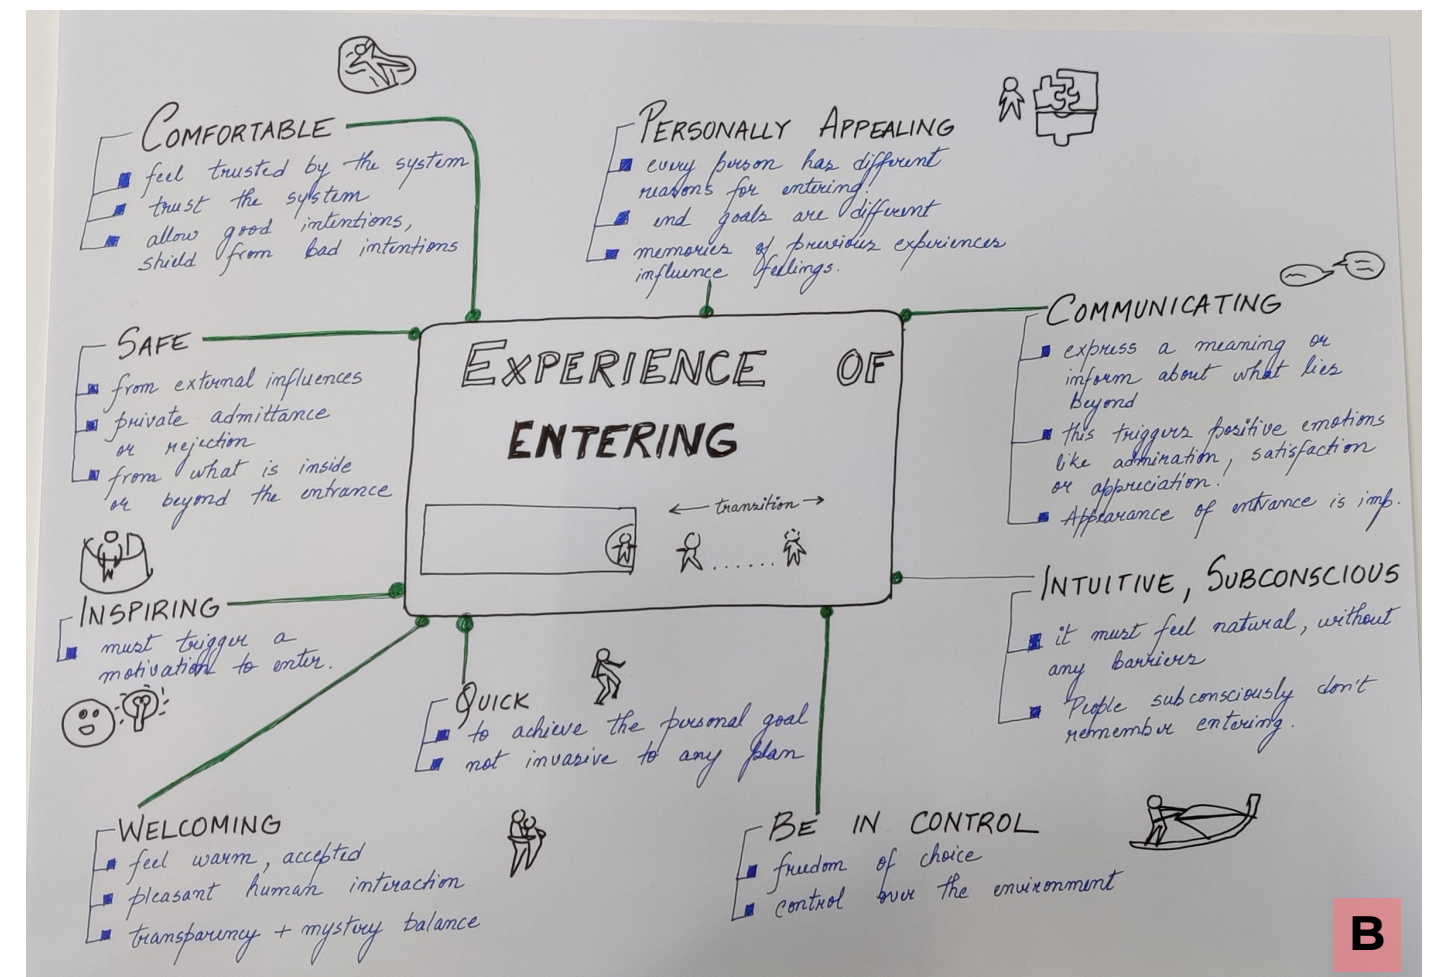 COMFORTABLE
feel trusted by the system
trust the system
allow good intentions,
shield from bad intentions
PERSONALLY APPEALING
every person has different
reasons for entering.
end goals are different
memories of previous experiences
influence feelings.
COMMUNICATING
express a meaning or
inform about what lies
beyond
this triggers positive emotions
like admiration, satisfaction
or appreciation.
Appearance of entrance is imp.
SAFE
from external influences
private admittance
or rejection
from what is inside
or beyond the entrance
EXPERIENCE OF
ENTERING
transition
INTUITIVE, SUBCONSCIOUS
it must feel natural, without
any barriers
People subconsciously don't
remember entering.
INSPIRING
must trigger a
motivation to enter.
QUICK
to achieve the personal goal
not invasive to any plan
WELCOMING
feel warm, accepted
pleasant human interaction
transparency + mystery balance
BE IN CONTROL
freedom of choice
control over the environment
B